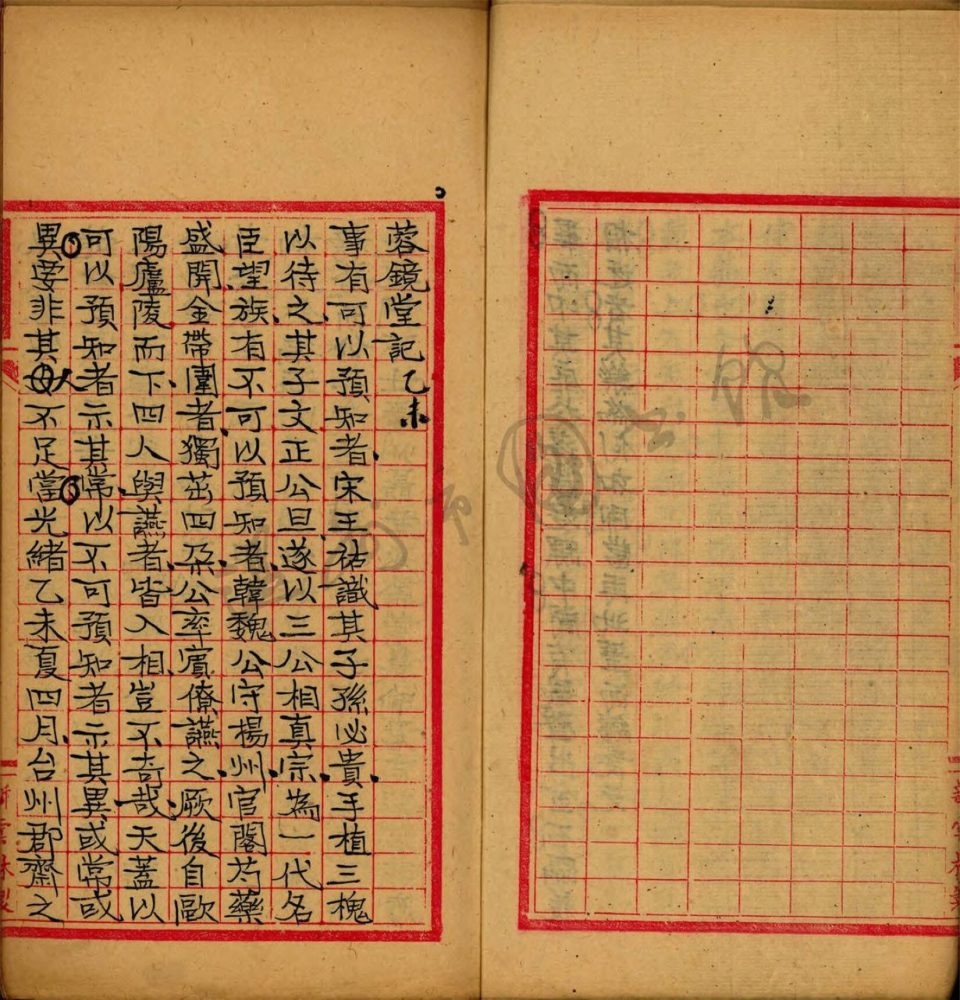 蓉鏡堂記 乙未
事有可以預知者宋王祐識其子孫必貴手植三槐
以待之其子文正公旦遂以三公相真宗為一代名
臣望族有不可以預知者韓魏公守楊州官閣芍藥
盛開金帶圍者獨茁四朶公率賓僚讌之厥後自歐
陽廬陵而下四人與讌者皆入相豈不奇哉天蓋以
可以預知者示其常以不可預知者示其異或常或
異要非其人不足當光緒乙未夏四月台州郡齋之